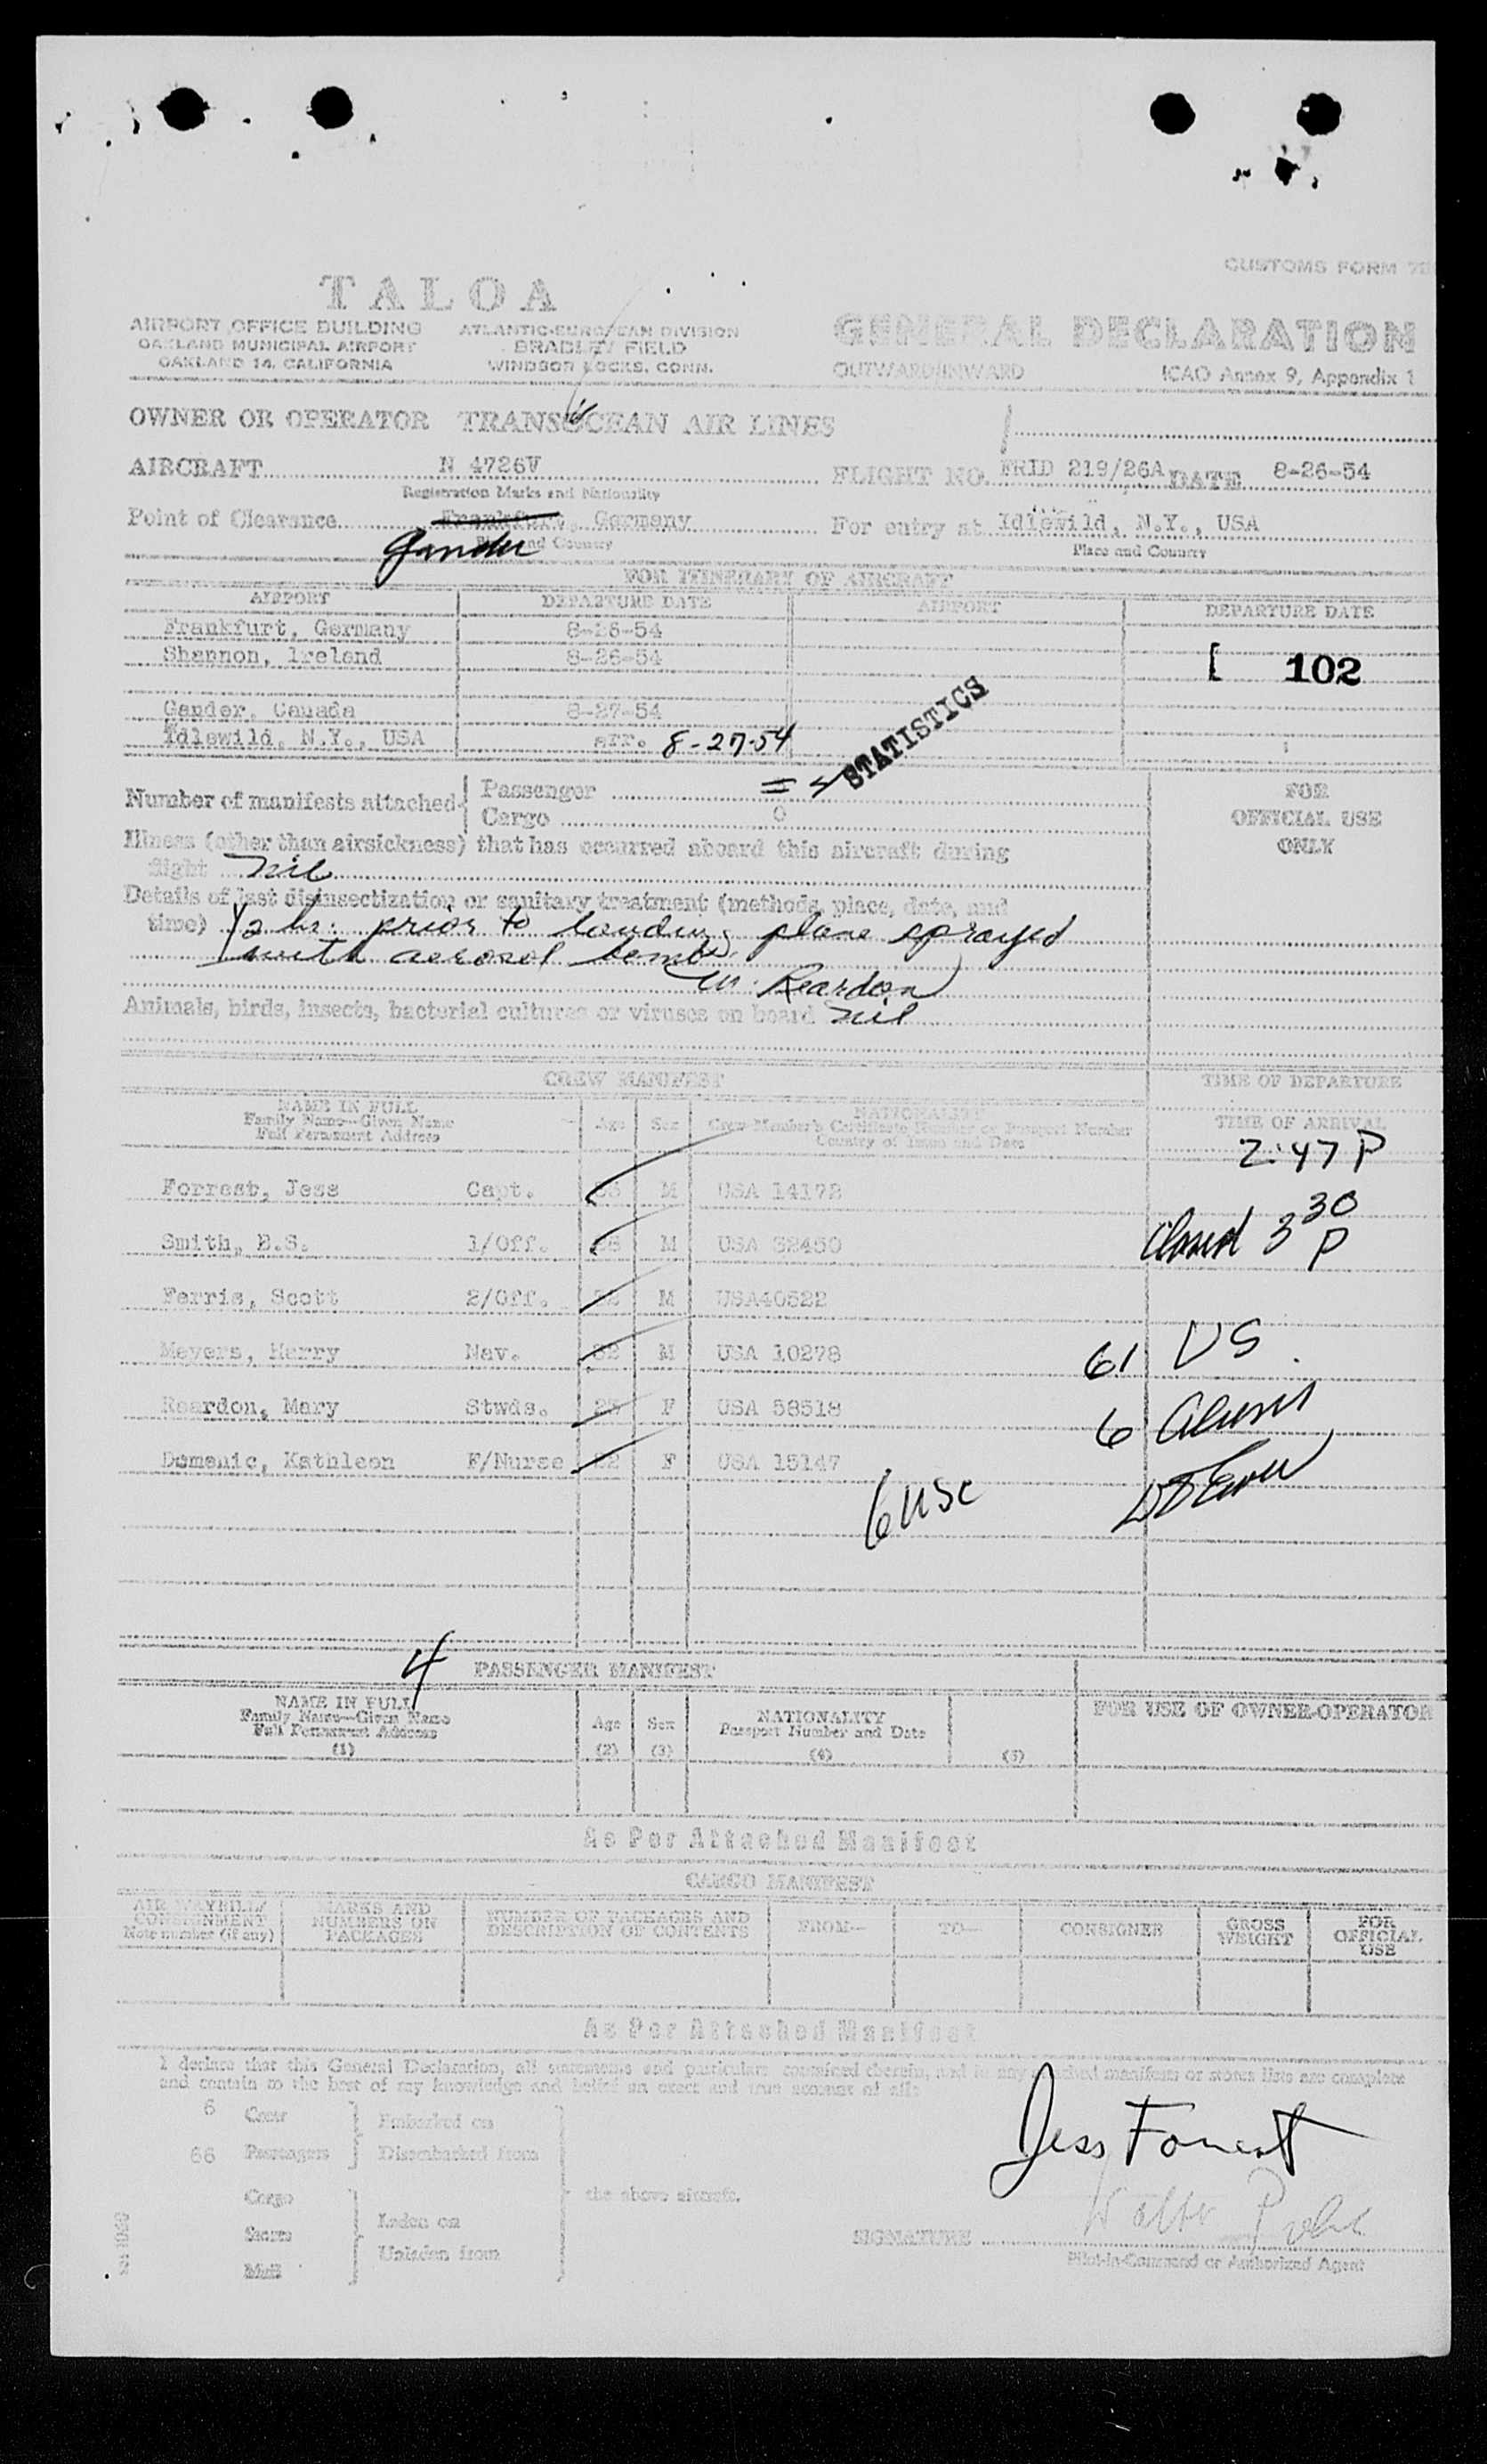 CUSTOMS FORM
TALOA
AIRPORT OFFICE BUILDING
OAKLAND MUNICIPAL AIRPORT
OAKLAND 14, CALIFORNIA
ATLANTIC-EUROPEAN DIVISION
BRADLEY FIELD
WINDSOR LOCKS, CONN.
GENERAL DECLARATION
OUTWARD/INWARD ICAO Annex 9, Appendix 1
OWNER OR OPERATOR TRANSOCEAN AIR LINES
AIRCRAFT N 4726V FLIGHT NO. FRID 219/26A DATE 8-26-54
Registration Marks and Nationality
Point of Clearance Frankfurt, Germany For entry at Idlewild, N.Y., USA
Gander Place and Country Place and Country
FOR ITINERARY OF AIRCRAFT
AIRPORT DEPARTURE DATE AIRPORT DEPARTURE DATE
Frankfurt, Germany 8-26-54
Shannon, Ireland 8-26-54
[ 102
Gander, Canada 8-27-54
Idlewild, N.Y., USA arr. 8-27-54
STATISTICS
Number of manifests attached
Passenger
Cargo 0
FOR
OFFICIAL USE
ONLY
Illness (other than airsickness) that has occurred aboard this aircraft during
flight nil
Details of last disinsectization or sanitary treatment (methods, place, date, and
time) 1/2 hr. prior to landing plane sprayed
with aerosol bomb.
M. Reardon
Animals, birds, insects, bacterial cultures or viruses on board nil
CREW MANIFEST TIME OF DEPARTURE
NAME IN FULL
Family Name—Given Name
Full Permanent Address
Age Sex
NATIONALITY
Crew Member's Certificate Number or Passport Number
Country of Issue and Date
TIME OF ARRIVAL
2:47 P
Forrest, Jess Capt. M USA 14172
Closed 3 30 P
Smith, B.S. 1/Off. M USA 32450
Ferris, Scott 2/Off. M USA40522
Meyers, Harry Nav. 32 M USA 10278
61 US
Reardon, Mary Stwds. F USA 58518
6 Aliens
Domenic, Kathleen F/Nurse 22 F USA 15147
6 USC
4
PASSENGER MANIFEST
NAME IN FULL
Family Name—Given Name
Full Permanent Address
(1)
Age
(2)
Sex
(3)
NATIONALITY
Passport Number and Date
(4)
(5)
FOR USE OF OWNER-OPERATOR
As Per Attached Manifest
CARGO MANIFEST
AIR WAYBILL/
CONSIGNMENT
Note number (if any)
MARKS AND
NUMBERS ON
PACKAGES
NUMBER OF PACKAGES AND
DESCRIPTION OF CONTENTS
FROM—
TO—
CONSIGNEE
GROSS
WEIGHT
FOR
OFFICIAL
USE
As Per Attached Manifest
I declare that this General Declaration, all statements and particulars contained therein, and in any attached manifests or stores lists are complete
and contain to the best of my knowledge and belief an exact and true account of all:
6 Crew
66 Passengers
Embarked on
Disembarked from
Cargo
Stores
Mail
Laden on
Unladen from
the above aircraft.
Jess Forrest
SIGNATURE
Pilot-in-Command or Authorized Agent